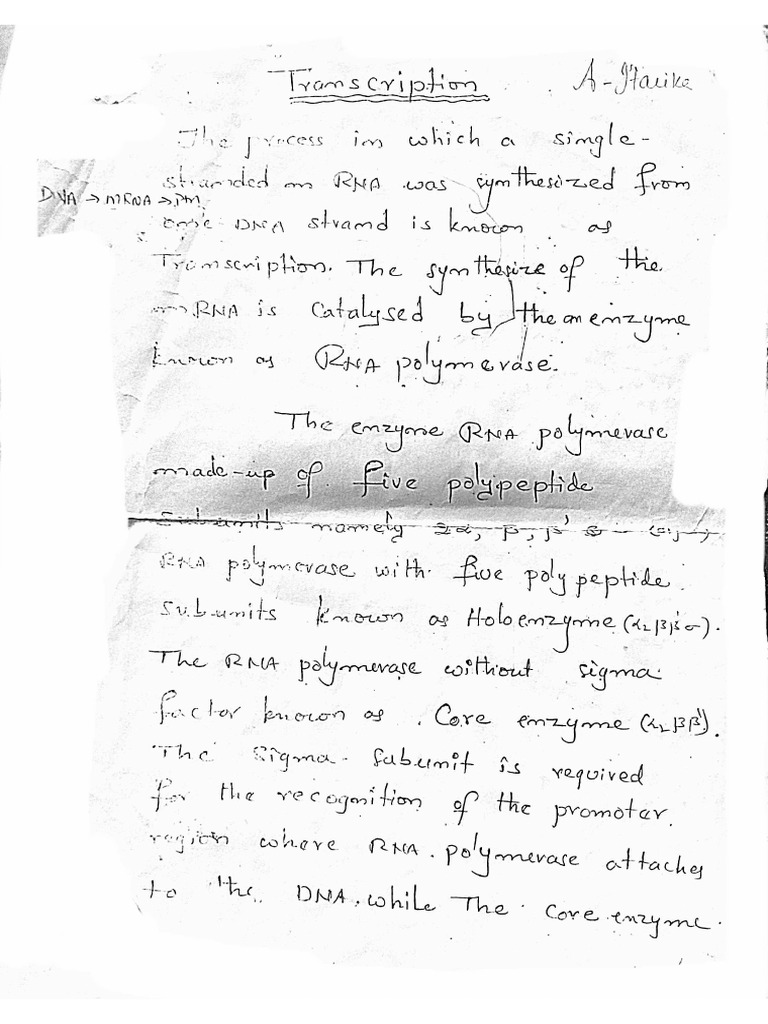 Transcription
A-Harika
The process in which a single-
stranded m RNA was synthesized from
DNA → mRNA →
one DNA strand is known as
Transcription. The synthesize of the
mRNA is Catalysed by the an enzyme
known as RNA polymerase.
The enzyme RNA polymerase
made-up of five polypeptide
Subunits namely 2α, β, β'
RNA polymerase with five polypeptide
Subunits known as Holoenzyme (α₂ββ'σ).
The RNA polymerase without sigma
factor known as Core enzyme (α₂ββ').
The Sigma Subunit is required
for the recognition of the promoter
region where RNA polymerase attaches
to the DNA. while The core enzyme